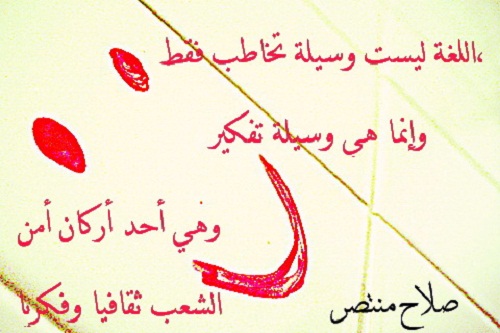 اللغة ليست وسيلة تخاطب فقط،
وإنما هي وسيلة تفكير
وهي أحد أركان أمن
الشعب ثقافيا وفكريا
صلاح منتصر